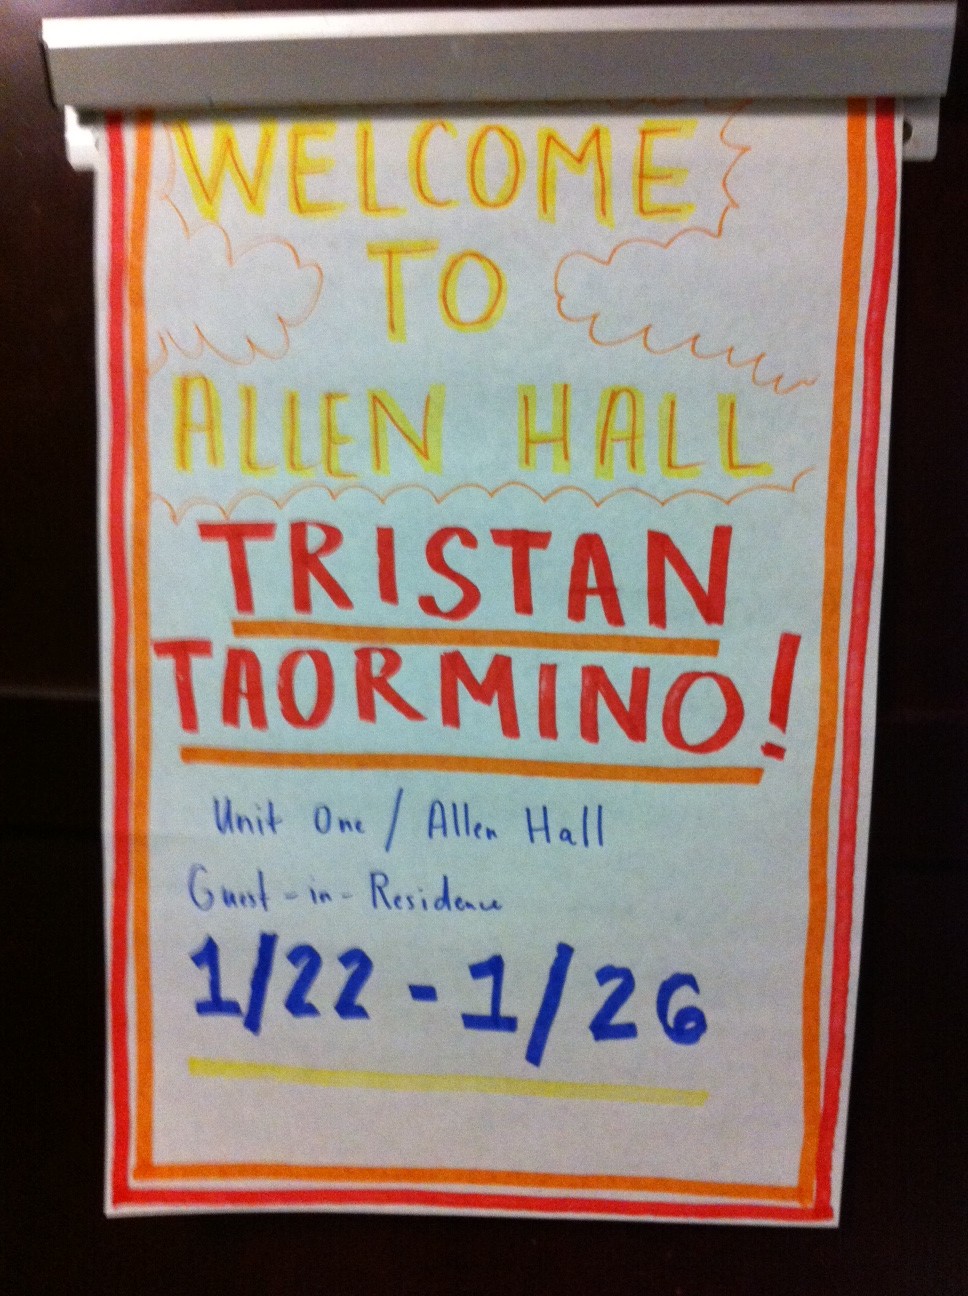 WELCOME
TO
ALLEN HALL
TRISTAN
TAORMINO!
Unit One / Allen Hall
Guest-in-Residence
1/22 - 1/26